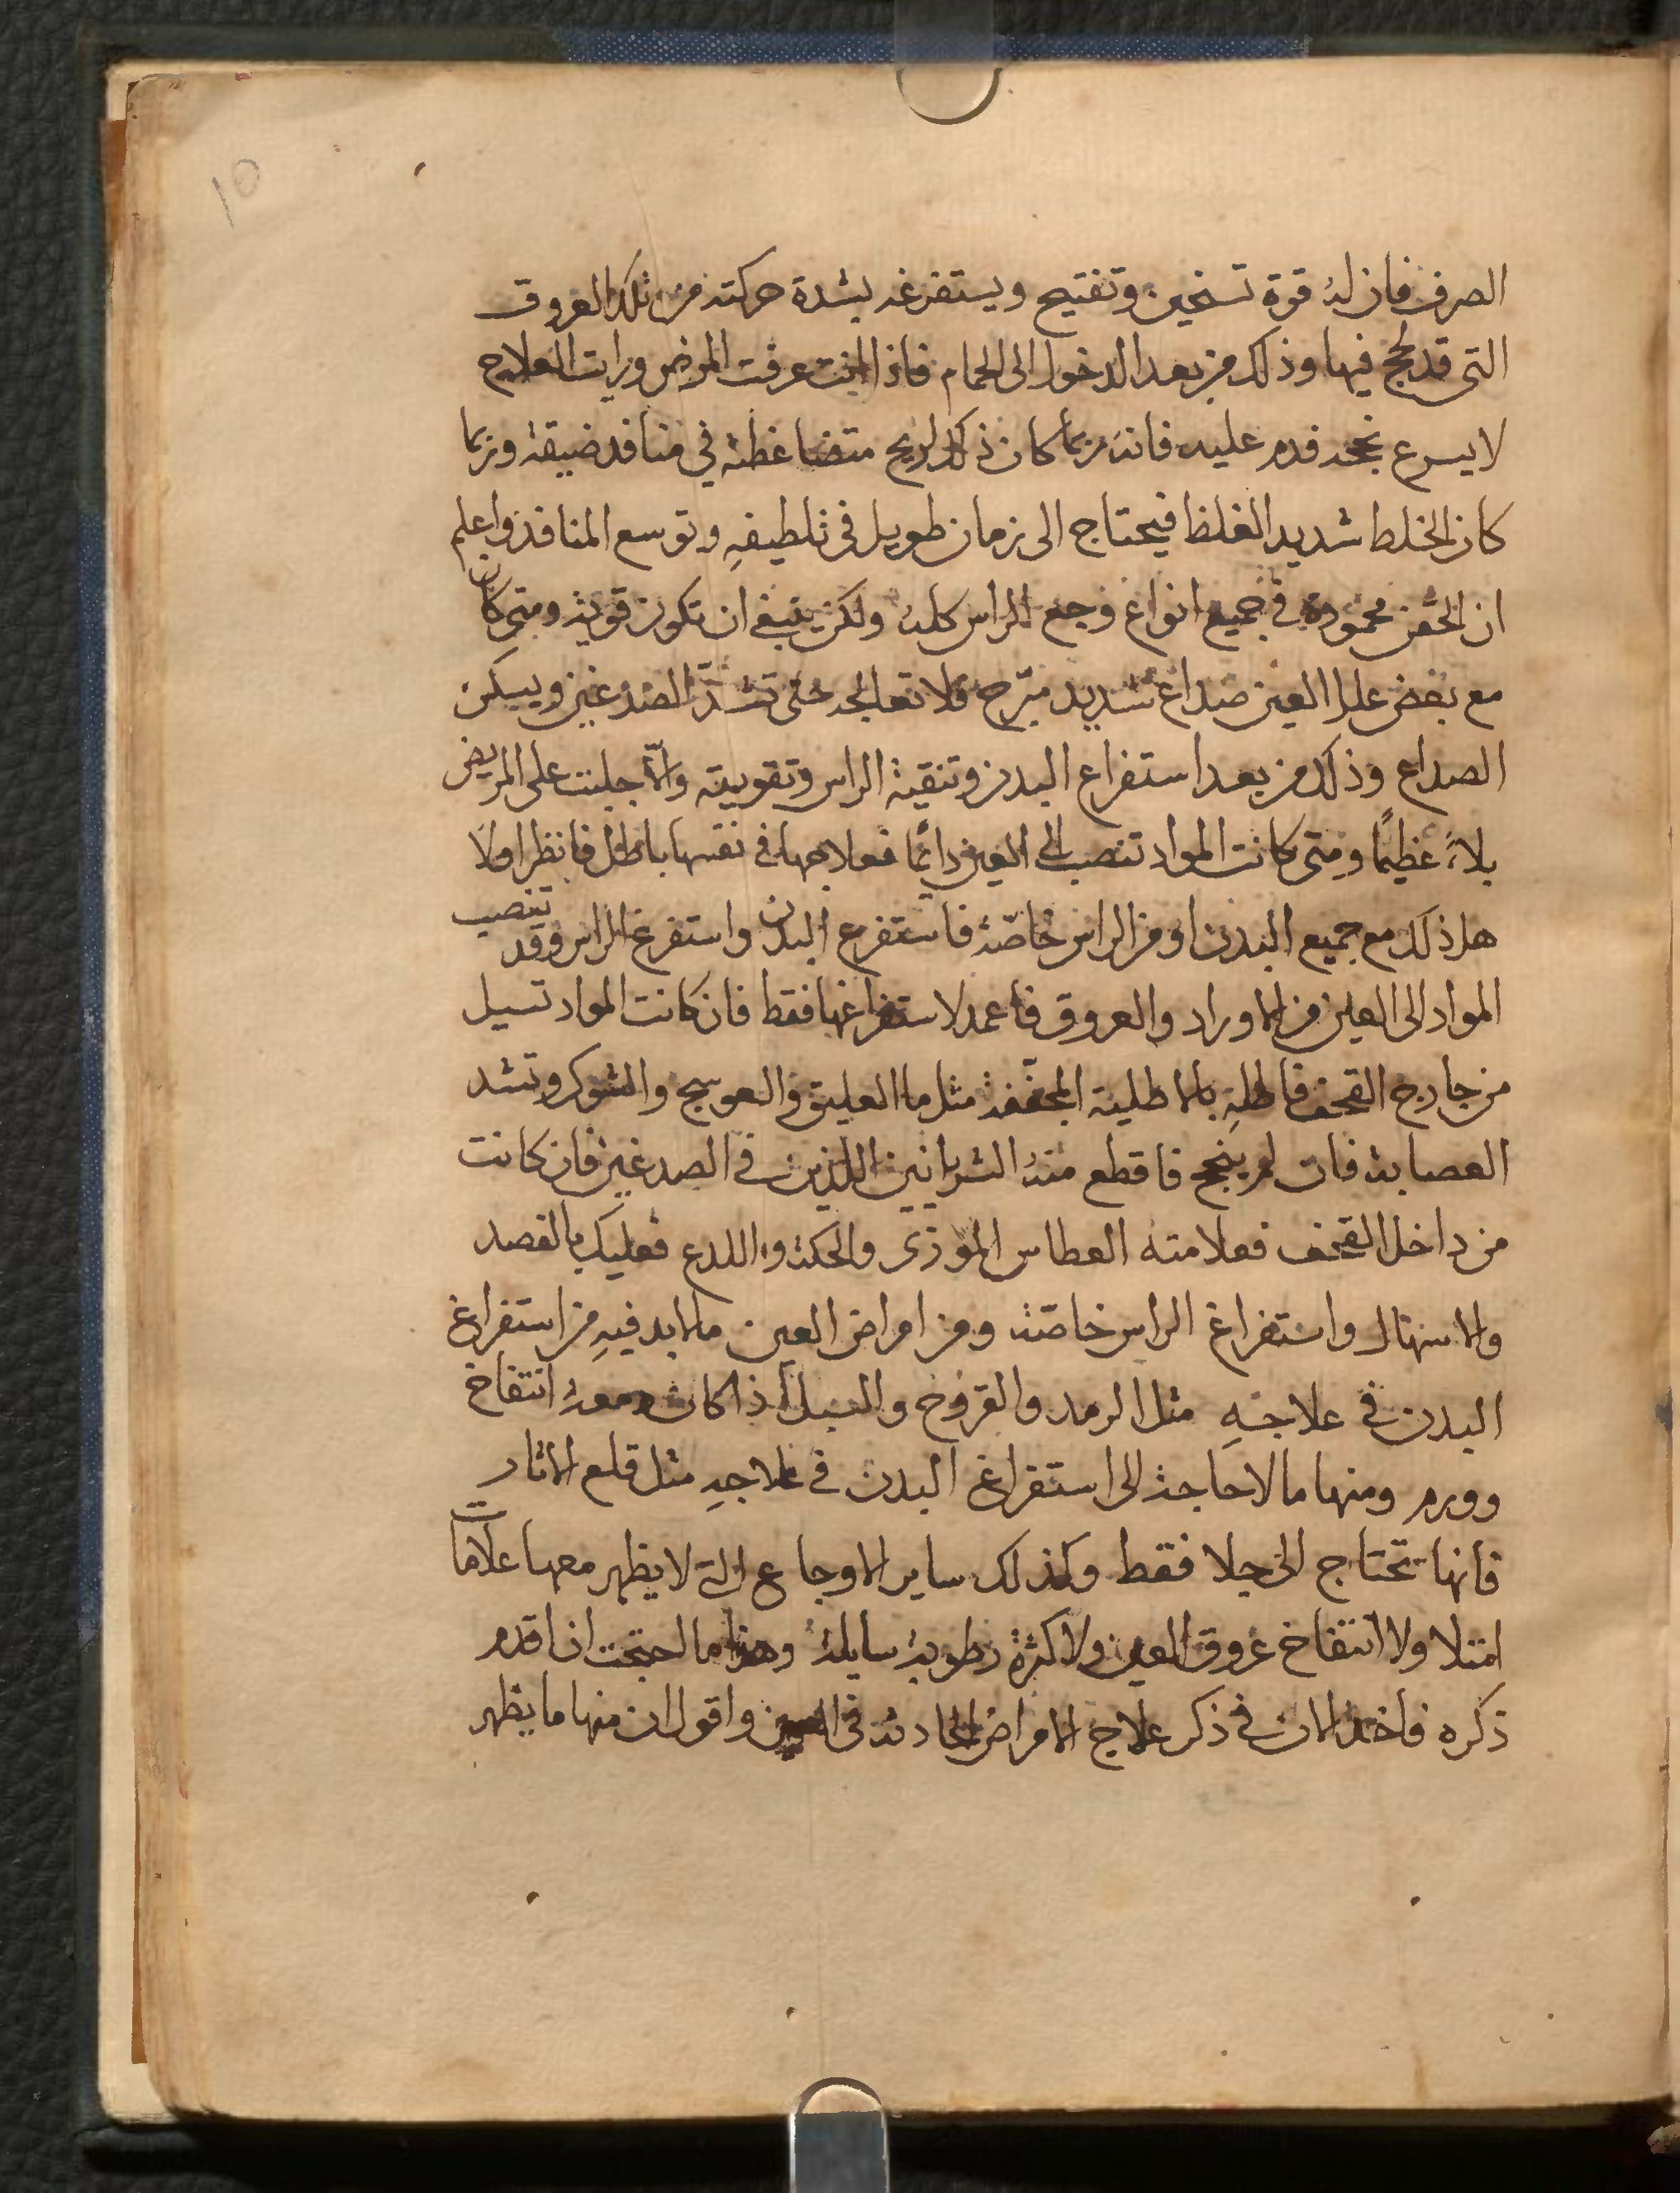 10
الصرف فان له قوة تسخين وتفتيح ويستفرغه بشدة حركته من تلك العروق
التى قد لحج فيها وذلك من بعد الدخول الى الحمام فاذا انت عرفت المرض ورايت العلاج
لا يسرع نجحه فدم عليه فانه ربما كان ذلك لريح متضاغطة في منافد ضيقة وربما
كان الخلط شديد الغلظ فيحتاج الى زمان طويل في تلطيفهِ وتوسع المنافذ واعلم
ان الحقن محمودة في جميع انواع وجع الراس كله ولكن ينبغي ان تكون قوية ومتى كان
مع بعض علل العين صداع شديد مبرح فلا تعالجه حتى تشدّ الصدغين ويسكن
الصداع وذلك من بعد استفراغ البدن وتنقية الراس وتقويته والّا جلبت على المريض
بلاءً عظيمًا ومتى كانت المواد تنصب الى العين دايمًا فعلاجها في نفسها باطل فانظر اولا
هل ذلك مع جميع البدن او من الراس خاصّة فاستفرغ البدن واستفرغ الراس وقد تنصب
المواد الى العين من الاوراد والعروق فاعمد لاستفراغها فقط فان كانت المواد تسيل
من خارج القحف فاطلهِ بالاطلية المجففة مثل ما العليق والعوسج والشوك وتشد
العصابة فان لم ينجح فاقطع منه الشريانين اللذين في الصدغين فان كانت
من داخل القحف فعلامته العطاس الموذى والحكة واللدع فعليك بالفصد
والاسهال واستفراغ الراس خاصّة ومن امراض العين ما لا بد فيهِ من استفراغ
البدن في علاجهِ مثل الرمد والقروح والسبل اذا كان معه انتفاخ
وورم ومنها ما لا حاجة الى استفراغ البدن في علاجهِ مثل قلع الاثار
فانها تحتاج الى جلا فقط وكذلك ساير الاوجاع التى لا يظهر معها علامات
امتلا ولا انتفاخ عروق العين ولا كثرة رطوبة سايلة وهذا ما احتجت ان اقدم
ذكره فاخذ الان في ذكر علاج الامراض الحادثة في العين واقول ان منها ما يظهر